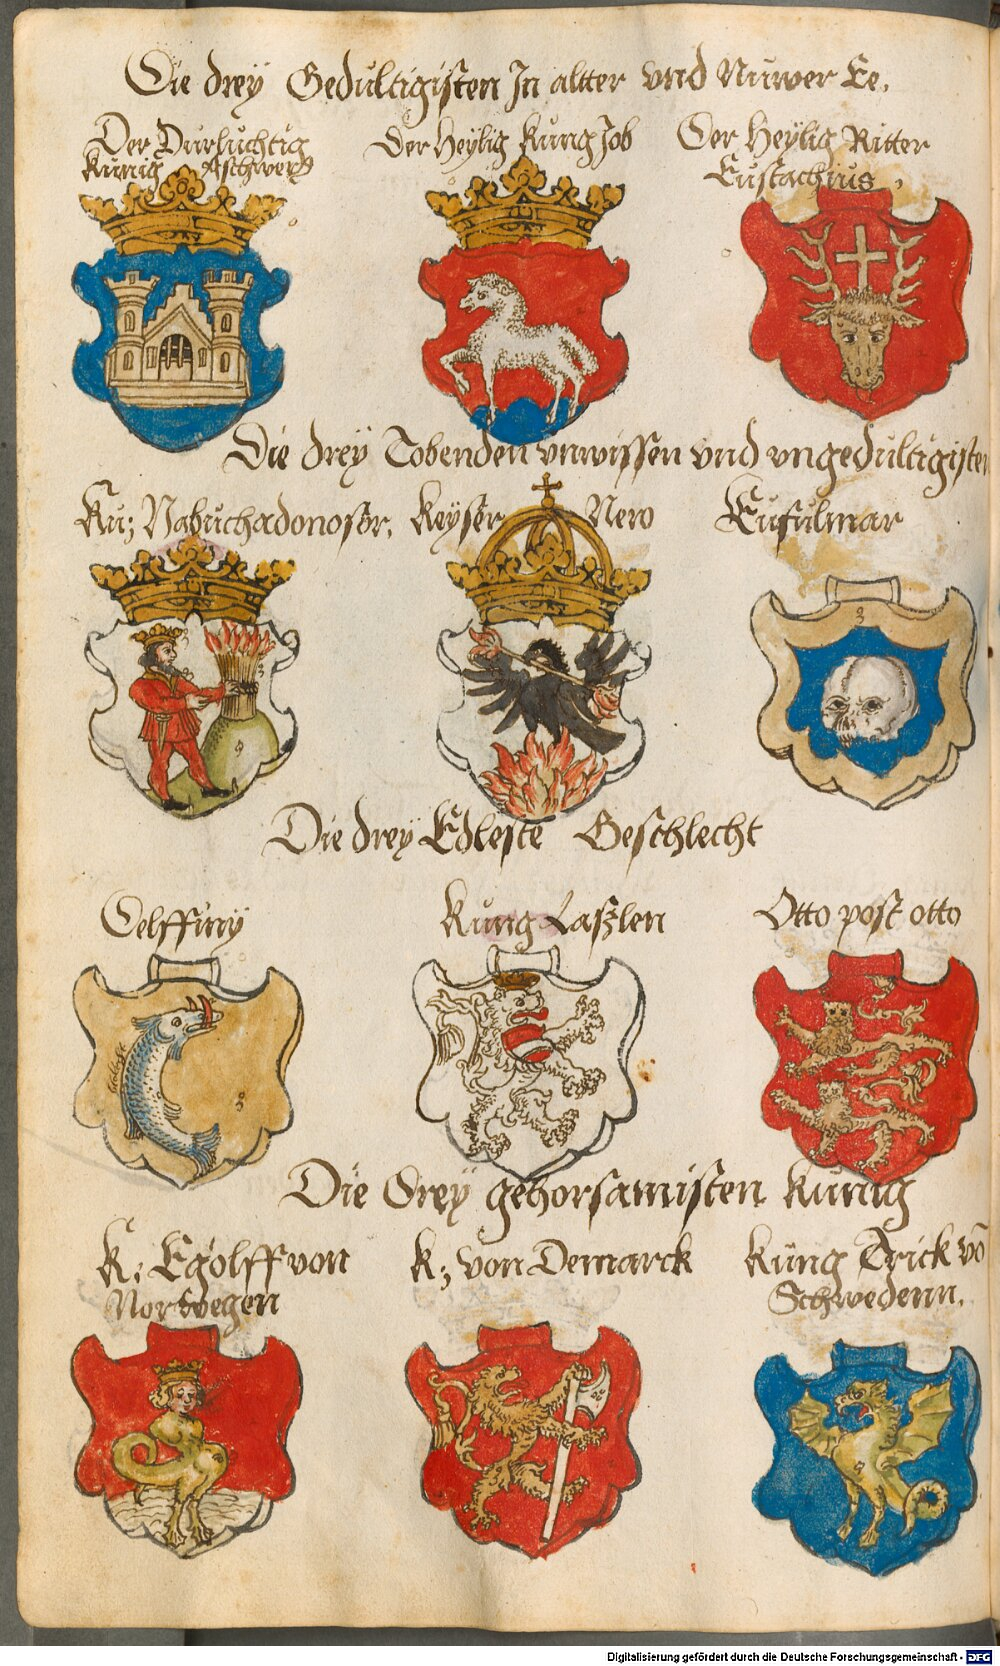 Die dreÿ Gedultigisten In altter vnd Nuwer Ee.
Der Durluchtig
Kunig Aschwerg
Der Heÿlig Kung Job
Der Heÿlig Ritter
Eustachius,
Die dreÿ Tobenden vnwissen vnd vngedultigisten
Ku; Nabuchodonosor.
Keÿser Nero
Eufulmar
Die dreÿ Edleste Geschlecht
Delffinÿ
Kung Laszlen
Otto post otto
Die Dreÿ gehorsamisten Kunig
K. Egolff von
Norwegen
K; von Demarck
Kung Erick võ
Schwedenn.
Digitalisierung gefördert durch die Deutsche Forschungsgemeinschaft - DFG